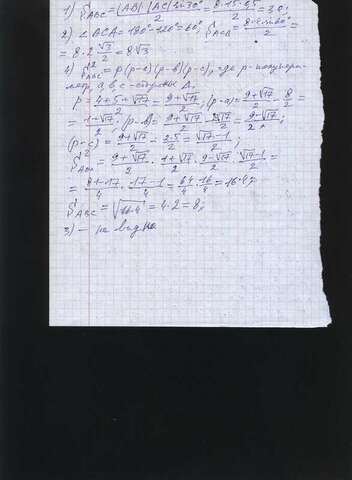 1) S ABC = |AB|·|AC| sin 30° / 2 = 8·15·0,5 / 2 = 30;
2) ∠BCA = 180° - 120° = 60°, S ACB = 8·4 sin 60° / 2 =
= 8·2 √3 / 2 = 8√3
4) S² ABC = p(p-a)(p-b)(p-c), где p - полупери-
метр, a, b, c - стороны Δ.
p = 4+5+√17 / 2 = 9+√17 / 2; (p-a) = 9+√17 / 2 - 8/2 =
= 1+√17 / 2; (p-b) = 9+√17 / 2 - 2√17 / 2 = 9-√17 / 2;
(p-c) = 9+√17 / 2 - 2·5 / 2 = √17-1 / 2;
S² ABC = 9+√17 / 2 · 1+√17 / 2 · 9-√17 / 2 · √17-1 / 2 =
= 81-17 / 4 · 17-1 / 4 = 64/4 · 16/4 = 16·4;
S ABC = √16·4 = 4·2 = 8;
3) - не видно